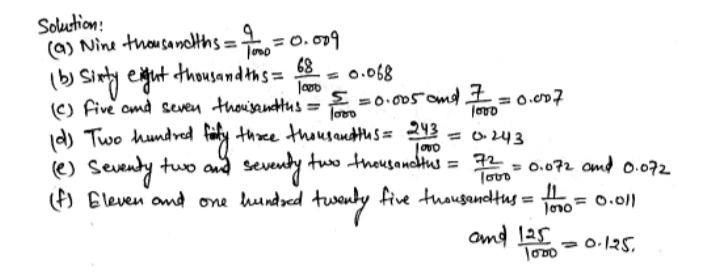 Solution:
(a) Nine thousandths = 9/1000 = 0.009
(b) Sixty eight thousandths = 68/1000 = 0.068
(c) Five and seven thousandths = 5/1000 = 0.005 and 7/1000 = 0.007
(d) Two hundred fifty three thousandths = 243/1000 = 0.243
(e) Seventy two and seventy two thousandths = 72/1000 = 0.072 and 0.072
(f) Eleven and one hundred twenty five thousandths = 11/1000 = 0.011
and 125/1000 = 0.125.